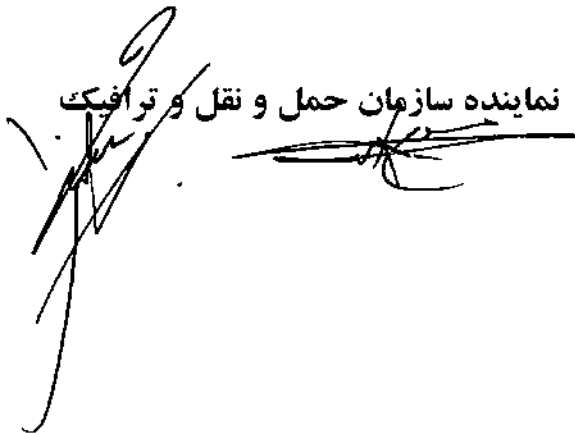 نماینده سازمان حمل و نقل و ترافیک